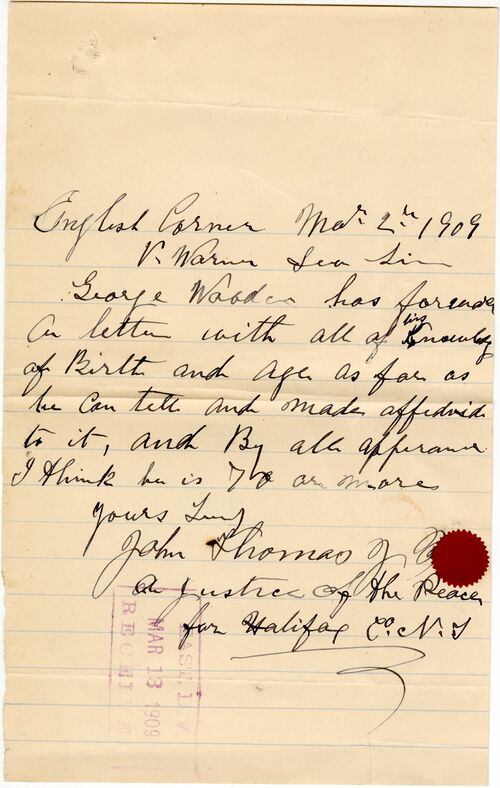 English Corner Mar 2th 1909
V. Warner Dear Sir
George Wooden has forended
a letter with all of his Knowledg
of Birth and age as far as
he can tell and made affedvid
to it, and By all apperance
I think he is 70 or more
yours Truly
John Thomas J
a Justice of the Peace
for Halifax Co. N. S
EASE L V
MAR 13 1909
RECEIVE